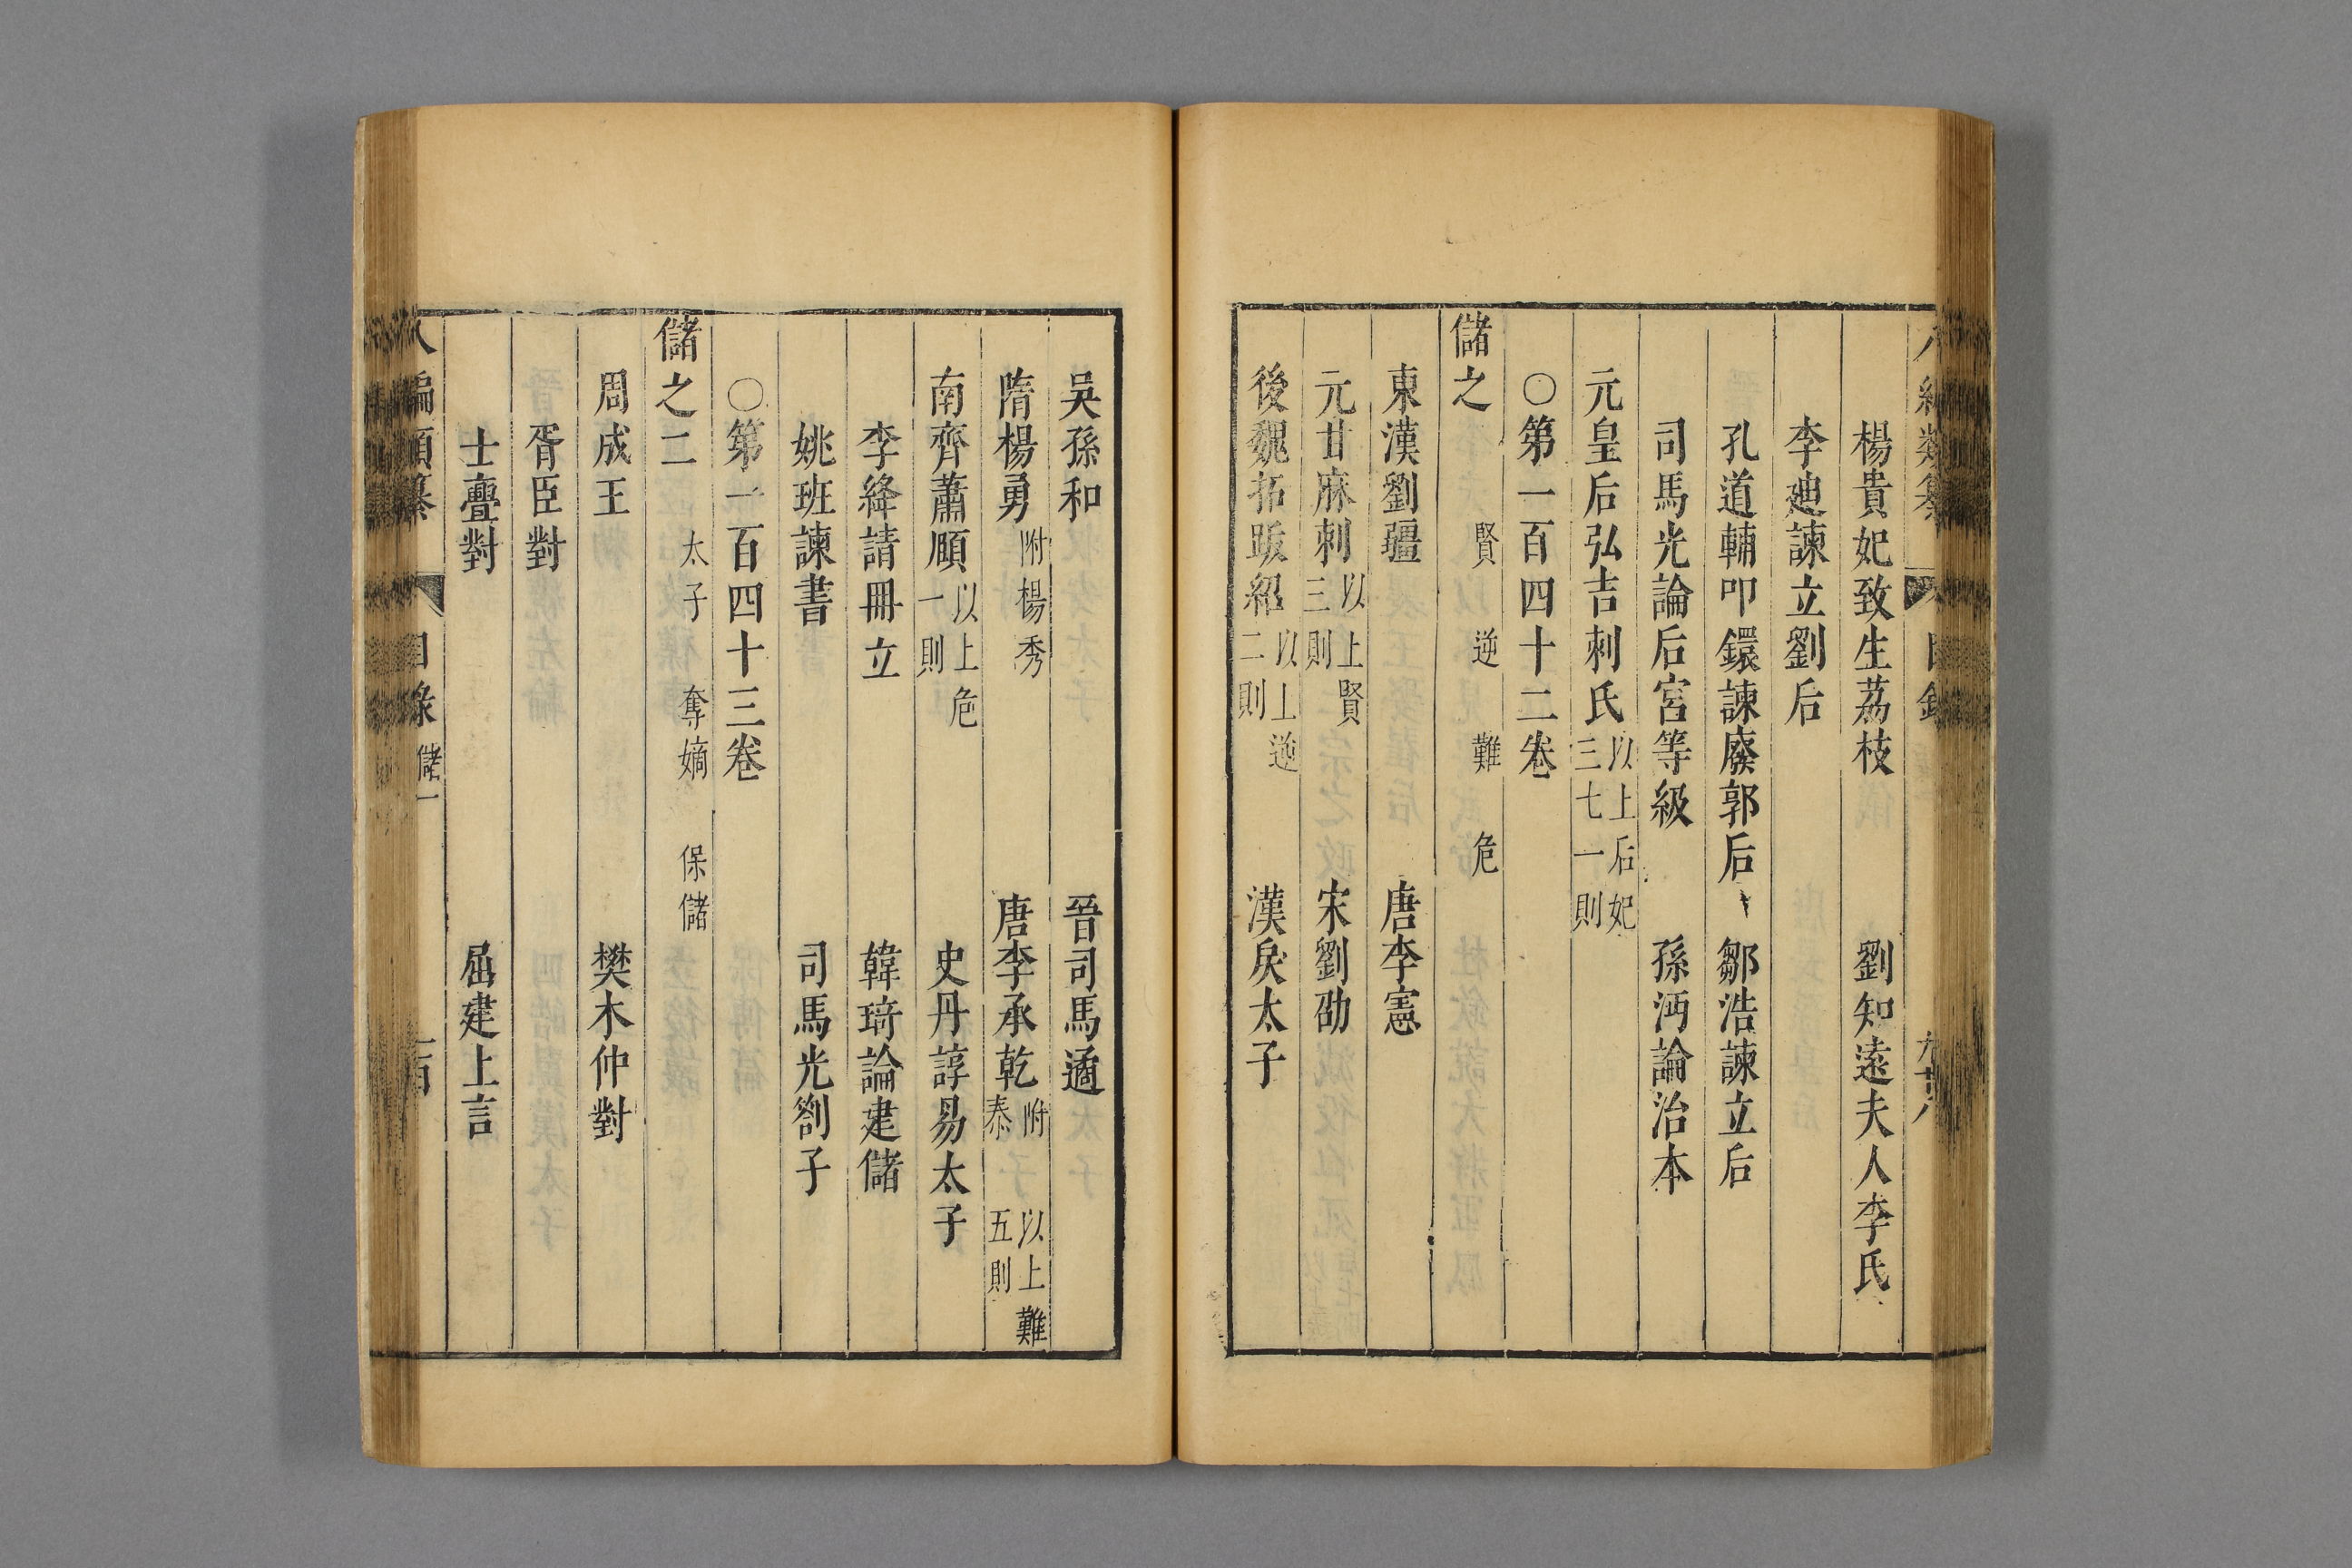 楊貴妃致生荔枝　劉知遠夫人李氏
李廸諫立劉后
孔道輔叩鐶諫廢郭后　鄒浩諫立后
司馬光論后宮等級　孫沔論治本
元皇后弘吉刺氏　以上后妃三七一則
○第一百四十二卷
儲之一　賢　逆　難　危
東漢劉疆　唐李憲
元甘麻刺　以上賢三則　宋劉劭
後魏拓跋紹　以上逆二則　漢戾太子
吳孫和　晉司馬遹
隋楊勇　附楊秀　唐李承乾　附泰　以上難五則
南齊蕭頤　以上危一則　史丹諄易太子
李絳請冊立　韓琦論建儲
姚班諫書　司馬光劄子
○第一百四十三卷
儲之二　太子　奪嫡　保儲
周成王　樊木仲對
胥臣對
士亹對　屈建上言
八編類纂　目錄　儲一